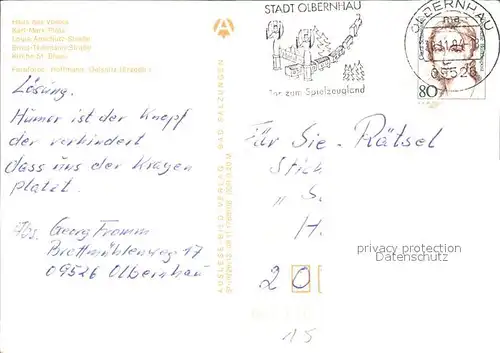 Haus des Volkes
Karl-Marx-Platz
Louis-Anschütz-Straße
Ernst-Thälmann-Straße
Fotohaus Hoffmann, Oelsnitz (Erzgeb.)
Lösung.
Humor ist der Knopf
der verhindert
dass uns der Kragen
platzt.
Abs. Georg Fromm
Brettmühlenweg 17
09526 Olbernhau
AUSLESE-BILD-VERLAG BAD SALZUNGEN
STADT OLBERNHAU
Tor zum Spielzeugland
OLBERNHAU
09526
80
Für Sie - Rätsel
Stich
„S.
H.
20
15
privacy protection
Datenschutz